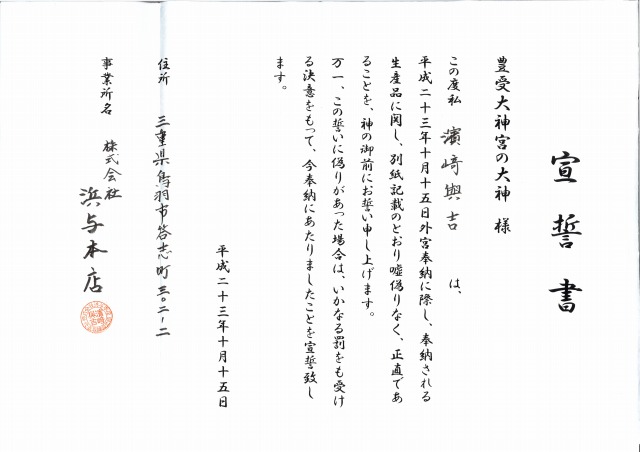 宣誓書
豊受大神宮の大神 様
この度私 濱﨑與吉 は、
平成二十三年十月十五日外宮奉納に際し、奉納される
生産品に関し、別紙記載のとおり嘘偽りなく、正直であ
ることを、神の御前にお誓い申し上げます。
万一、この誓いに偽りがあった場合は、いかなる罰をも受け
る決意をもって、今奉納にあたりましたことを宣誓致し
ます。
平成二十三年十月十五日
住所 三重県鳥羽市答志町三〇二-二
事業所名 株式会社 浜与本店